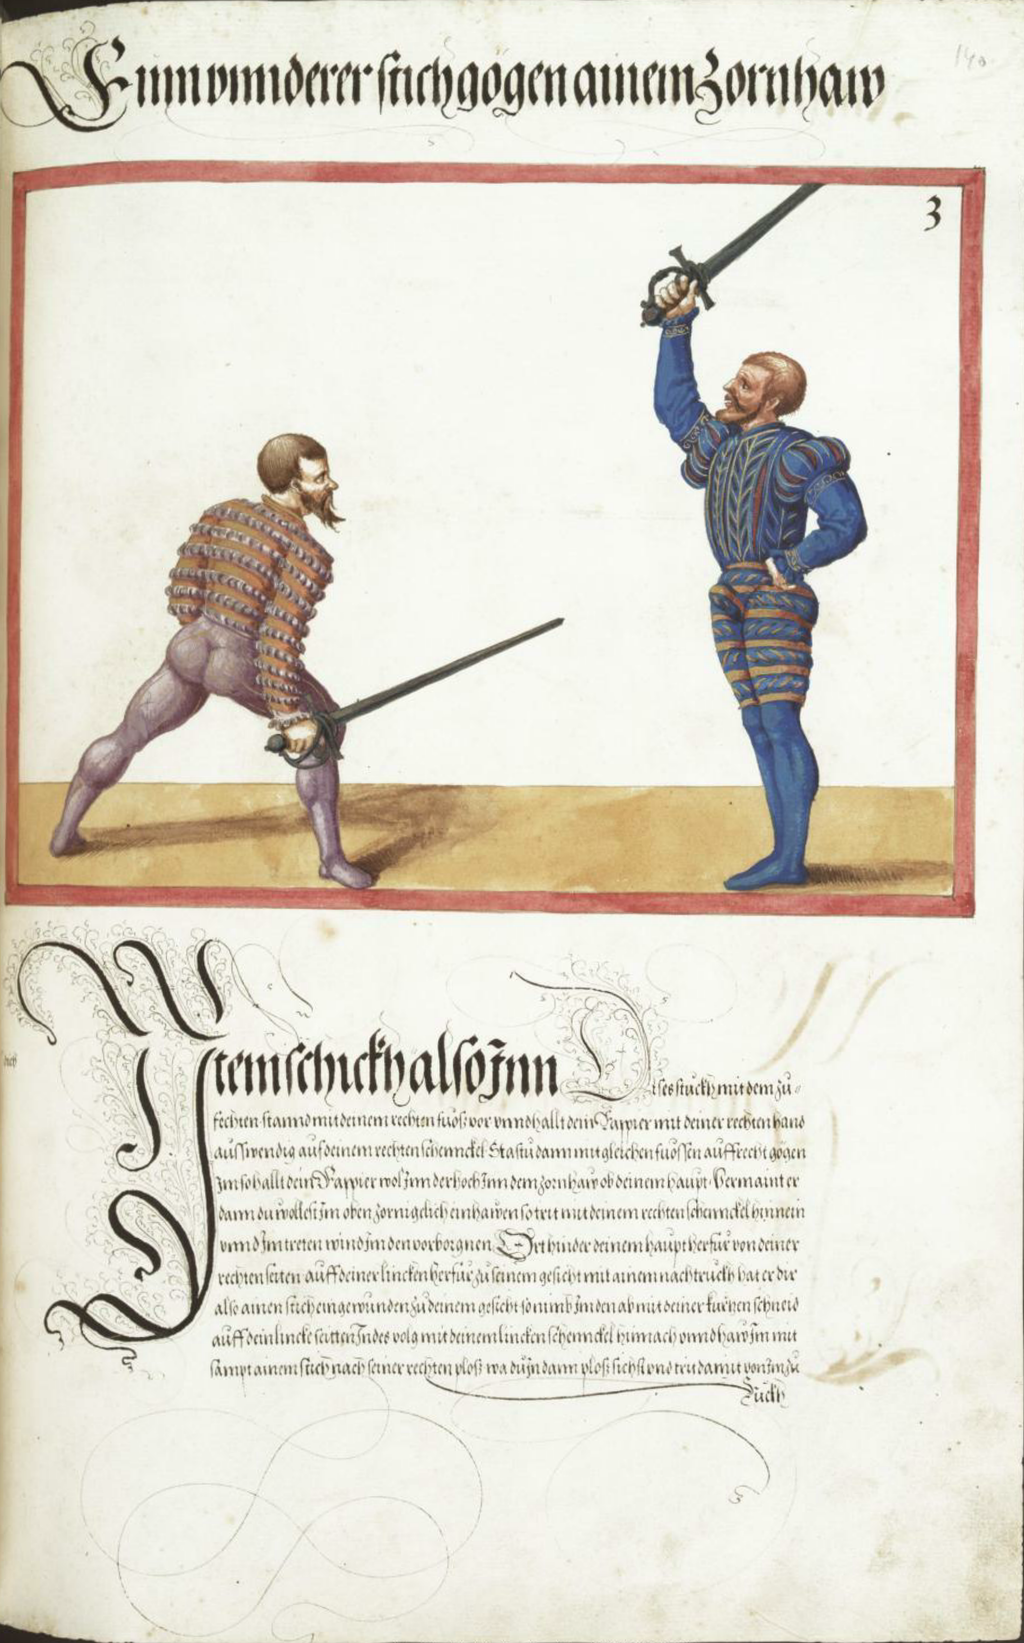 Ein unnderer stich gögen ainem Zornhaw
140
3
Item schickh also Inn Dises stuckh mit dem zu-
fechten stannd mit deinem rechten fuoß vor unnd hallt dein Rappier mit deiner rechten hand
ausswendig auf deinem rechten schennckel Stastu dann mit gleichen fuossen auffrecht gögen
Im so hallt dein Rappier wol Inn der hoch Inn dem zornhaw ob deinem haupt Vermaint er
dann du wöllest Im oben zornigclich einhawen so trit mit deinem rechten schennckel hinnein
unnd Im treten wind Im den vorborgnen Ort hinder deinem haupt herfür von deiner
rechten seiten auff deiner lincken herfür zu seinem gesicht mit ainem nachtruckh hat er dir
also ainen stich eingewunden zu deinem gesicht so nimb Im den ab mit deiner kurtzen schneid
auff dein lincke seitten Indes volg mit deinem lincken schennckel hinnach unnd haw Im mit
sampt ainem stich nach seiner rechten ploß wa du In dann ploß sichst und trit damit von Im zu
Ruckh